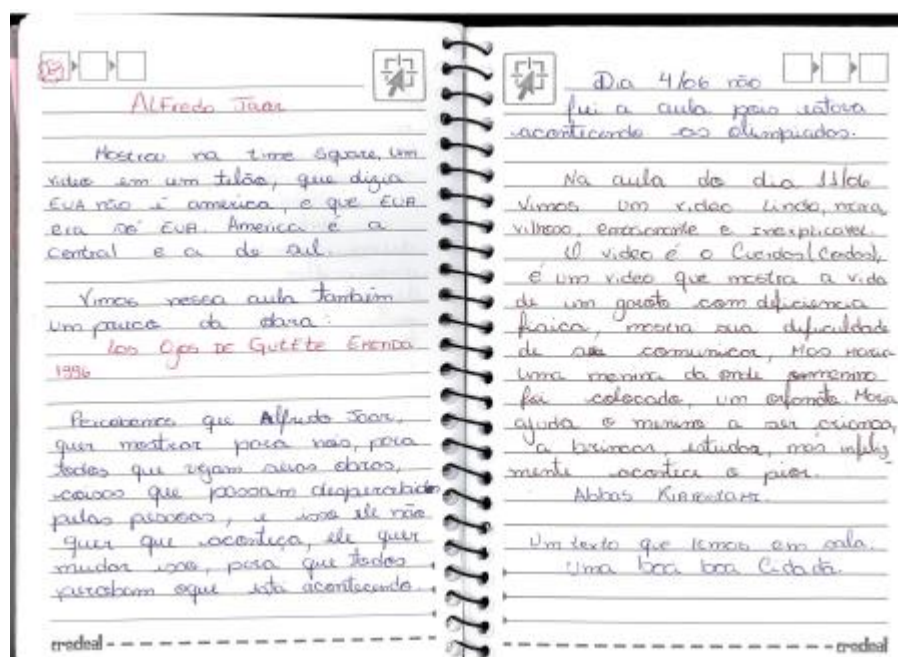 Alfredo Jaar
Mostrou na time square, um
video em um telão, que dizia
EUA não é america, e que EUA
era só EUA. America é a
central e a do sul.
Vimos nessa aula também
um pouco da obra:
Los Ojos DE Gutete Emenda
1996
Percebemos que Alfredo Jaar,
quer mostrar para nós, para
todos que vejam suas obras,
coisas que passam despercebidas
pelas pessoas, e isso ele não
quer que aconteça, ele quer
mudar isso, para que todos
percebam oque está acontecendo.
credeal
Dia 4/06 não
fui a aula pois estava
acontecendo as olimpiadas.
Na aula do dia 11/06
vimos um video lindo, mara
vilhoso, emocionante e inexplicavel.
O video é o Cuerdas (Cordas),
é um video que mostra a vida
de um garoto com deficiencia
fisica, mostra sua dificuldade
de se comunicar, Mas Maria
uma menina da onde o menino
foi colocado, um orfanato. Maria
ajuda o menino a ser criança,
a brincar, estudar, mas infeliz
mente acontece o pior.
Abbas Kiarostami.
Um texto que lemos em sala.
Uma boa boa Cidadã.
credeal